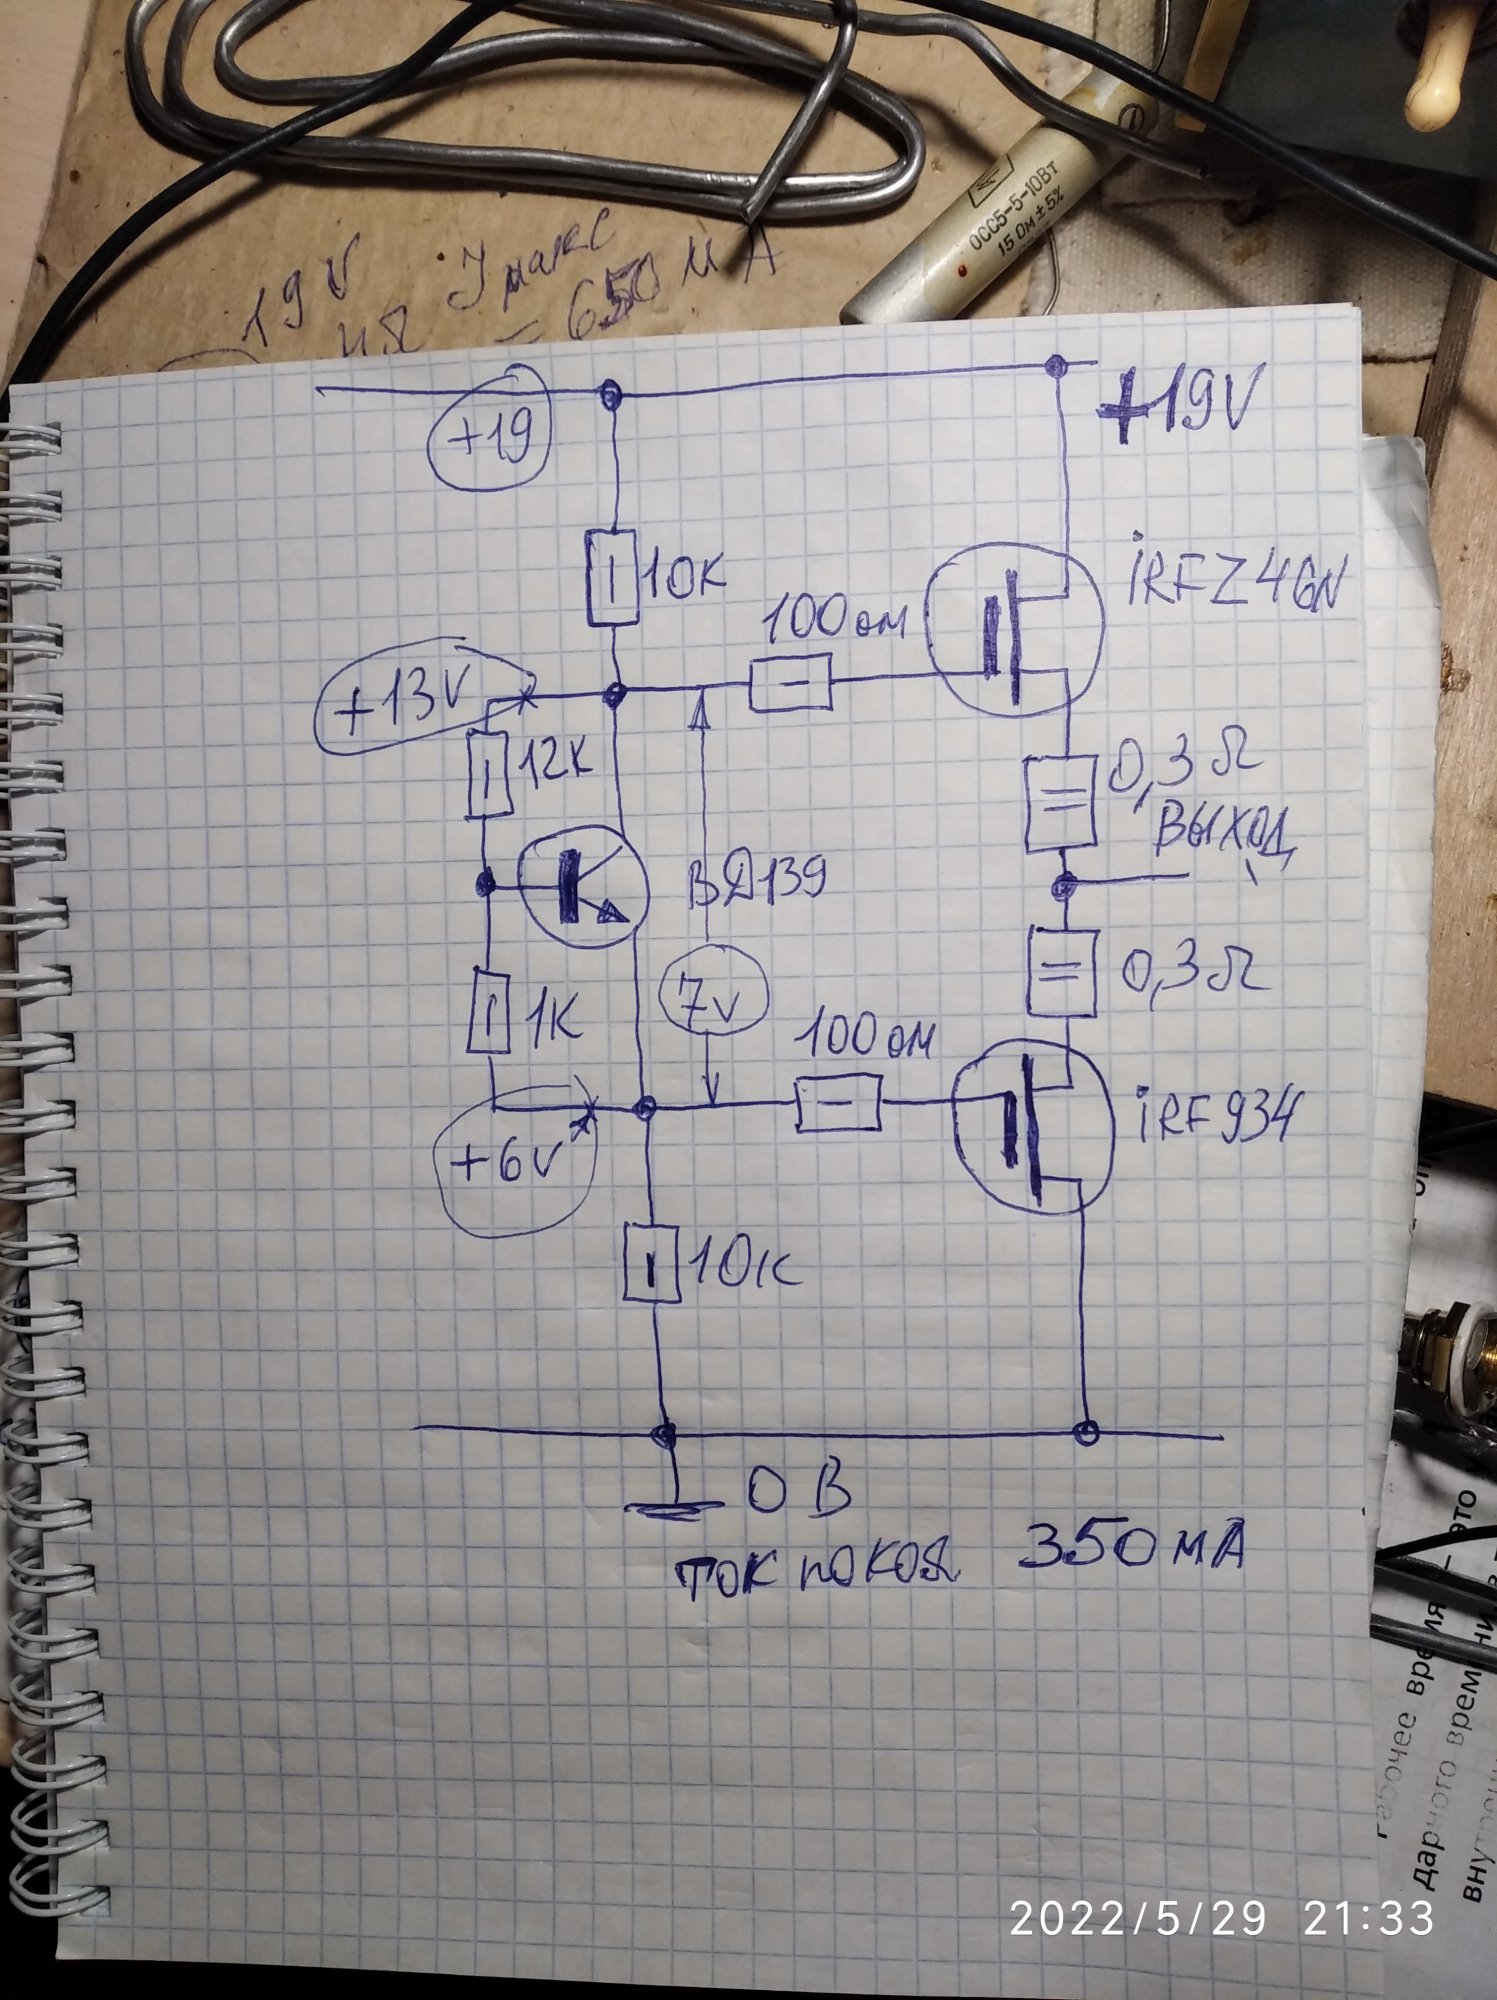 19V Iмакс
= 650 мА
ОСС5-5-10Вт
15 Ом ±5%
+19
+19V
10К
iRFZ46N
100 ом
+13V
12К
0,3 Ω
ВЫХОД
ВД139
7v
0,3 Ω
1К
100 ом
iRF934
+6V
10К
0 В
ток покоя 350 мА
рабочее время – это
дарного
2022/5/29 21:33